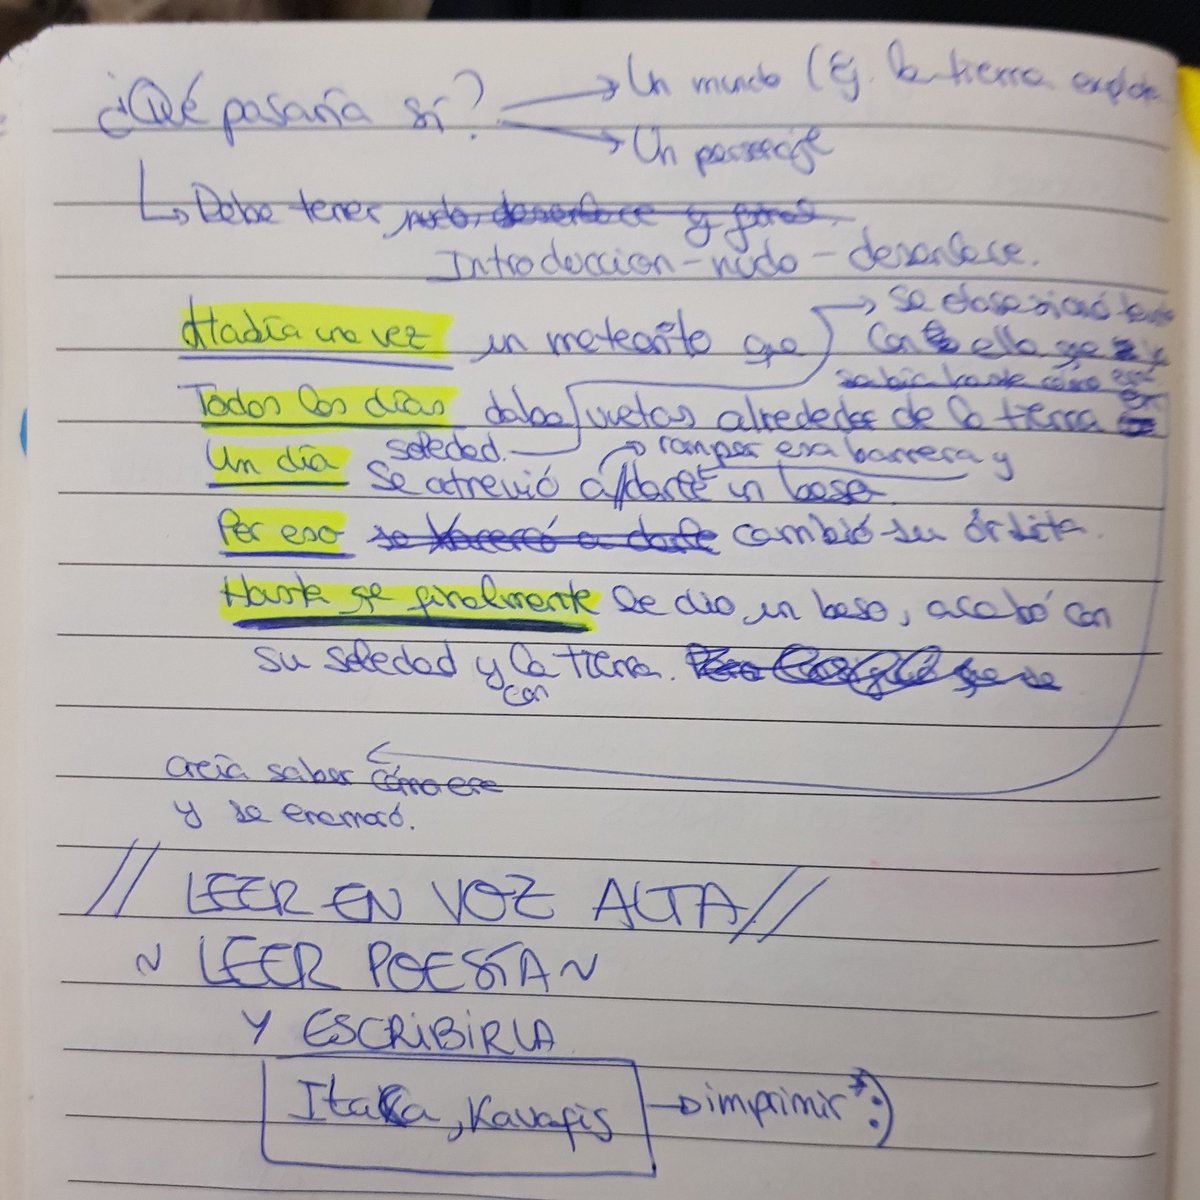 ¿Qué pasaría si? → Un mundo (Ej. la tierra explota
→ Un personaje
↳ Debe tener nudo, desenlace y final.
Introduccion - nudo - desenlace.
→ se obsesionó tanto
Había una vez un meteorito que
con ella que y
Todos los días daba vueltas alrededor de la tierra
sabía hasta cómo era
Un día soledad. → romper esa barrera y
se atrevió a darle un beso
Por eso se acercó a darle cambió su órbita.
Hasta que finalmente se dio un beso, acabó con
su soledad y con la tierra. que se
creía saber cómo era
y se enamoró.
// LEER EN VOZ ALTA //
~ LEER POESÍA ~
Y ESCRIBIRLA
Itaca, Kavafis → imprimir * :)